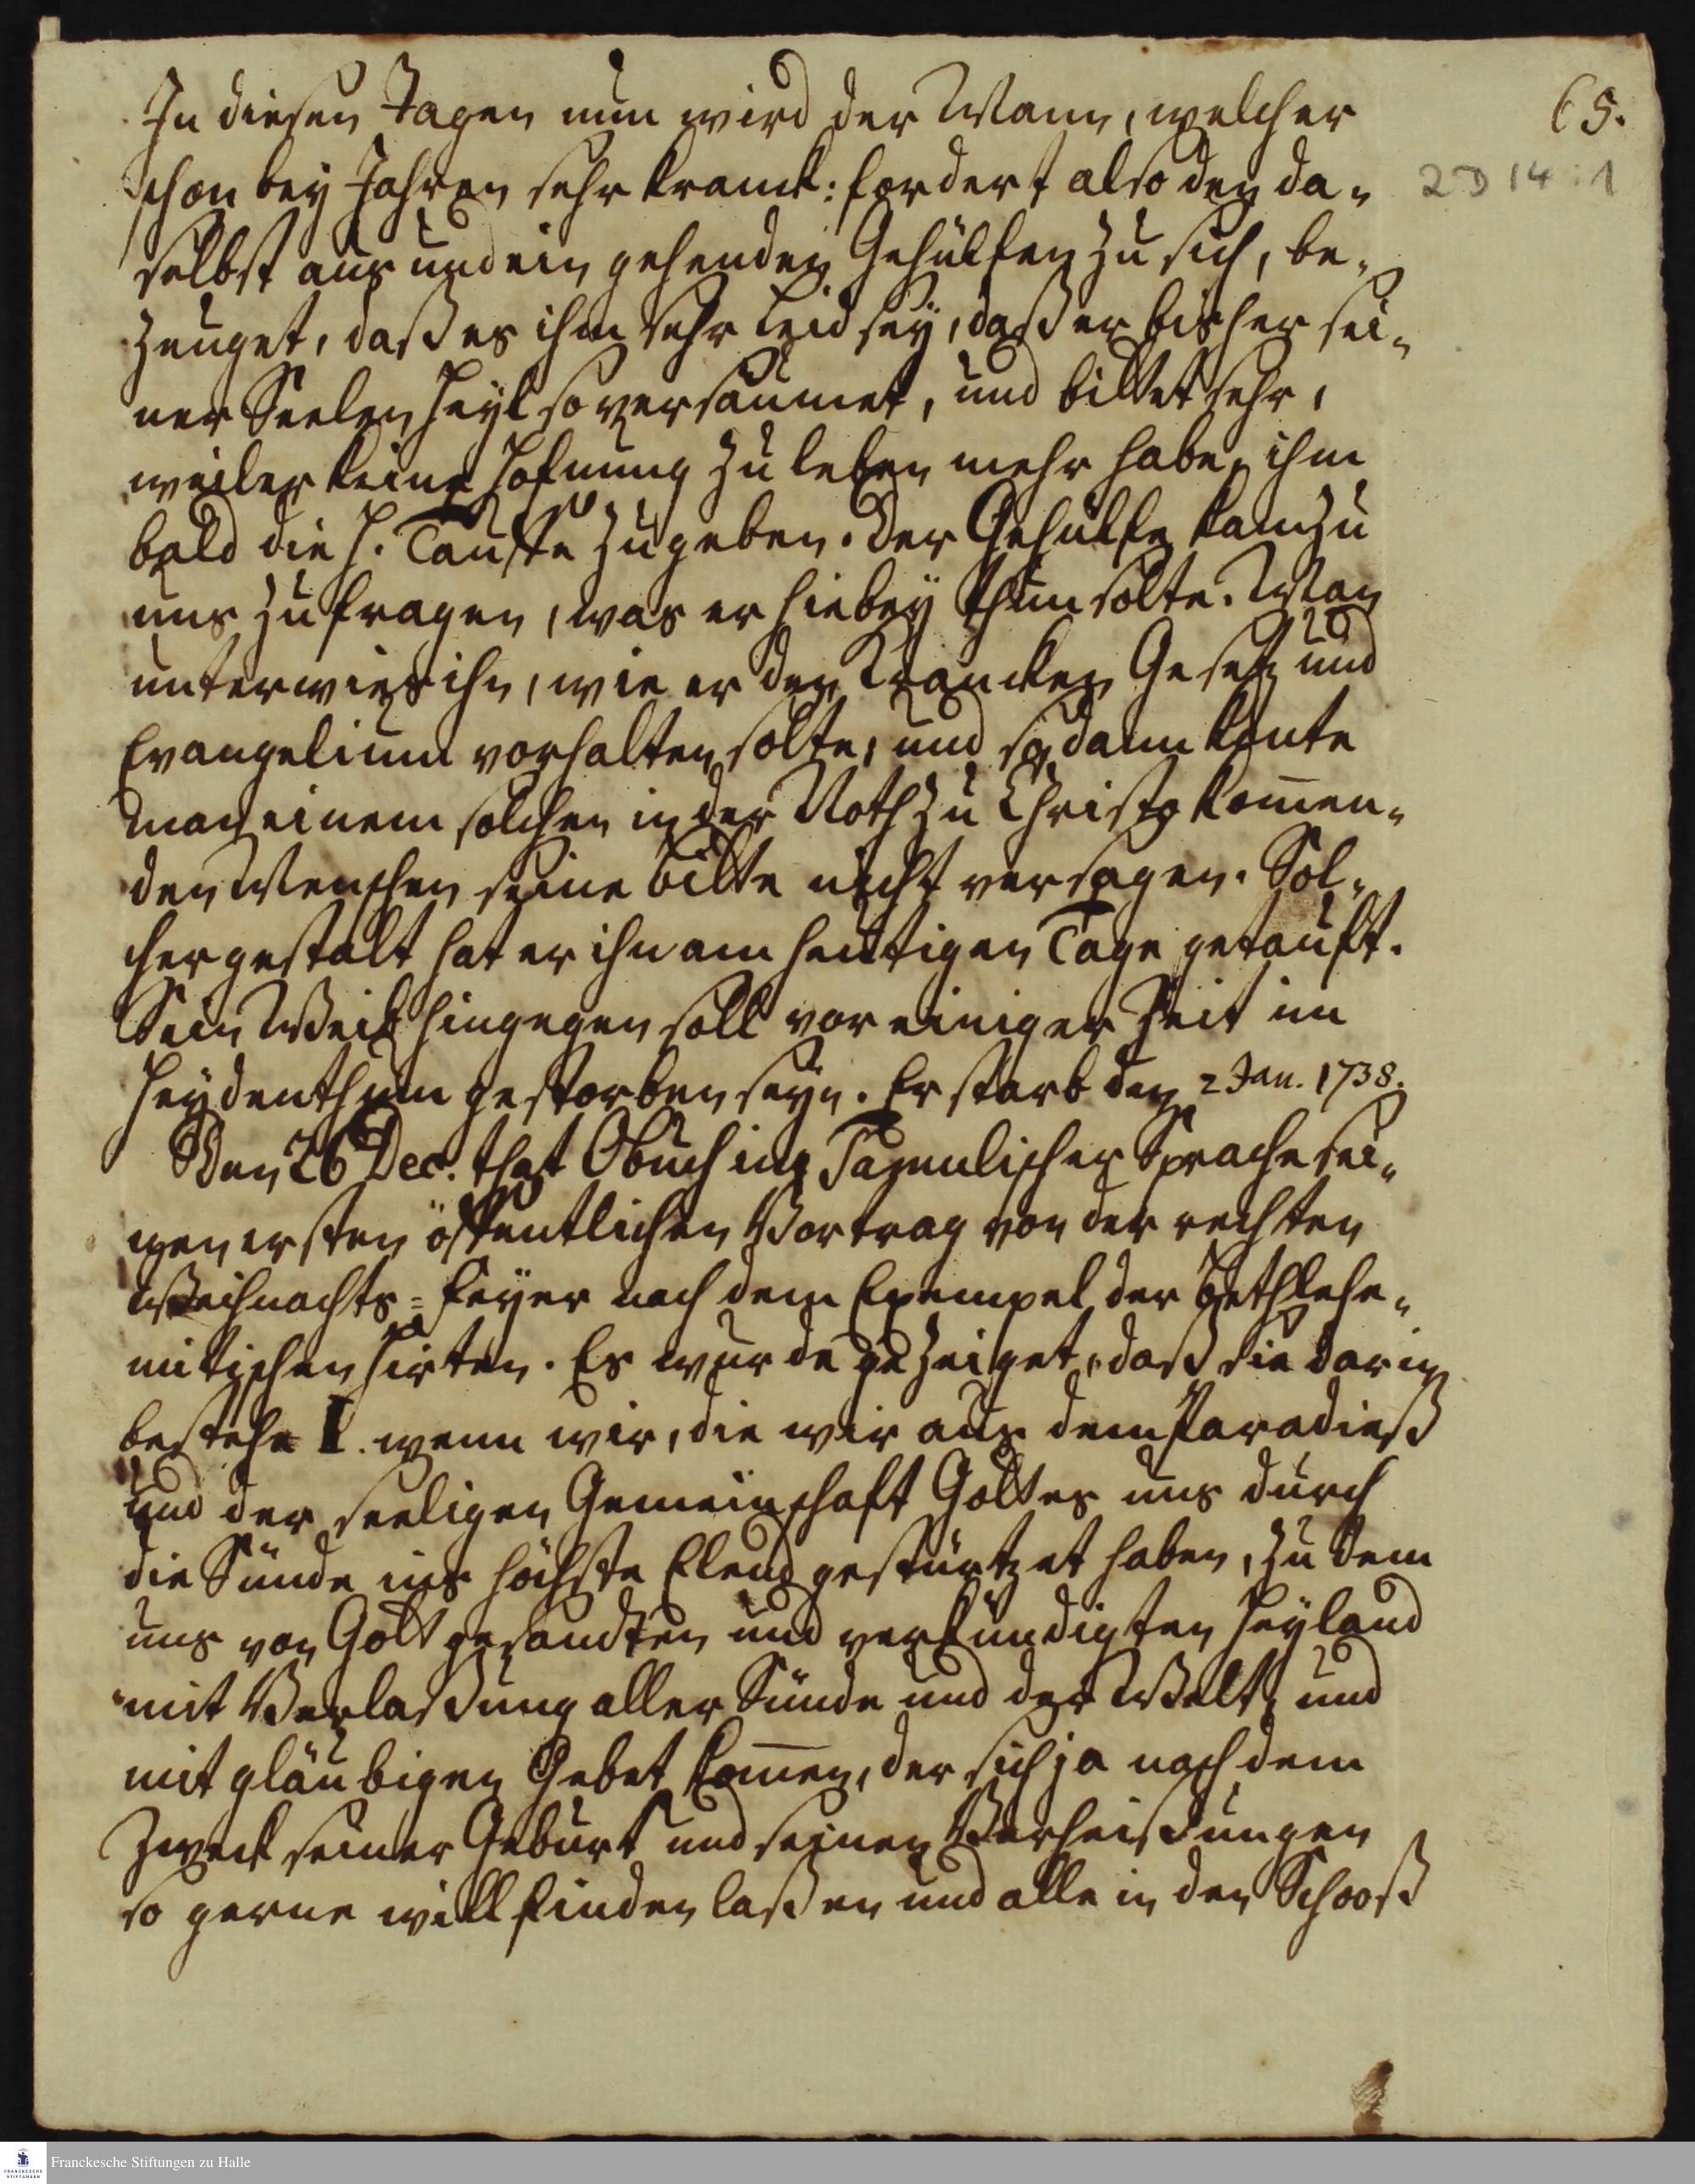 65.
2D 14:1
In diesen Tagen nun wird der Mann, welcher
schon bey Jahren sehr kranck: fordert also den da-
selbst aus und ein gehenden Gehülfen zu sich, be-
zeuget, daß es ihm sehr leid sey, daß er bisher sei-
ner Seelen Heyl so versäumet, und bittet sehr,
weil er keine Hofnung zu leben mehr habe, ihm
bald die H. Tauffe zu geben. Der Gehülfe kam zu
uns zu fragen, was er hiebey thun solte. Man
unterwies ihn, wie er den Krancken Gesetz und
Evangelium vorhalten solte, und so dann könte
man einem solchen in der Noth zu Christo kom̅en-
den Menschen seine bitte nicht versagen. Sol-
chergestalt hat er ihn am heutigen Tage getauft.
Sein Weib hingegen soll vor einiger Zeit im
Heydenthum gestorben seyn. Er starb den 2 Jan. 1738.
Den 26 Dec. that Obuch in Tamulischer Sprache sei-
nen ersten öffentlichen Vortrag von der rechten
Weihnachts=feyer nach dem Exempel der Bethlehe-
mitischen Hirten. Es wurde gezeiget, daß sie darin
bestehe I. wenn wir, die wir aus dem Paradieß
und der seeligen Gemeinschaft Gottes uns durch
die Sünde ins höchste Elend gestürtzet haben, zu dem
uns von Gott gesandten und verkündigten Heyland
mit Verlaßung aller Sünde und der Welt, und
mit gläubigen Gebet kom̅en, der sich ja nach dem
Zweck seiner Geburt und seinen Verheißungen
so gerne will finden laßen und alle in den Schooß
FRANCKESCHE STIFTUNGEN
Franckesche Stiftungen zu Halle